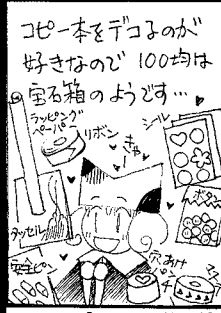 コピー本をデコるのが
好きなので 100均は
宝石箱のようです…♥
ラッピング
ペーパー
リボン
シール
きゃー
タッセル
安全ピン
穴あけ
パンチ